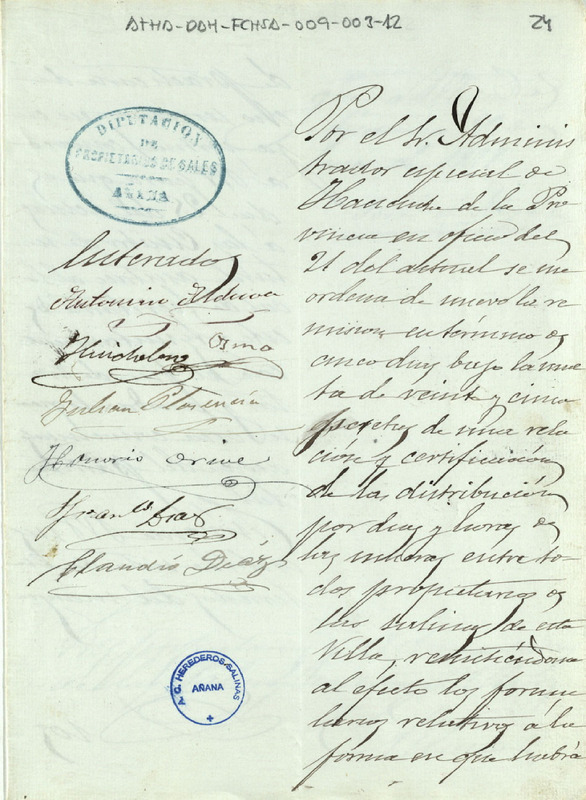 ATHA-DAH-FCHSA-009-003-12
24
DIPUTACION
DE
PROPIETARIOS DE SALES
AÑANA
Enterados
Antonino Alduna
Osma
Julian Plasencia
Honorio Orive
Franco Diaz
Claudio Diaz
A.C. HEREDEROS/SALINAS
AÑANA
Por el Sr. Adminis
trador especial de
Hacienda de la Pro
vincia en oficio del
21 del actual se me
ordena de nuevo la re
mision en término de
cinco dias bajo la mul
ta de veinte y cinco
pesetas de una rela
cion y certificación
de las distribución
por dias y horas de
las mueras entre to-
dos propietarios de
las salinas de esta
Villa, remitiéndome
al efecto los formu
larios relativos á la
forma en que habrá